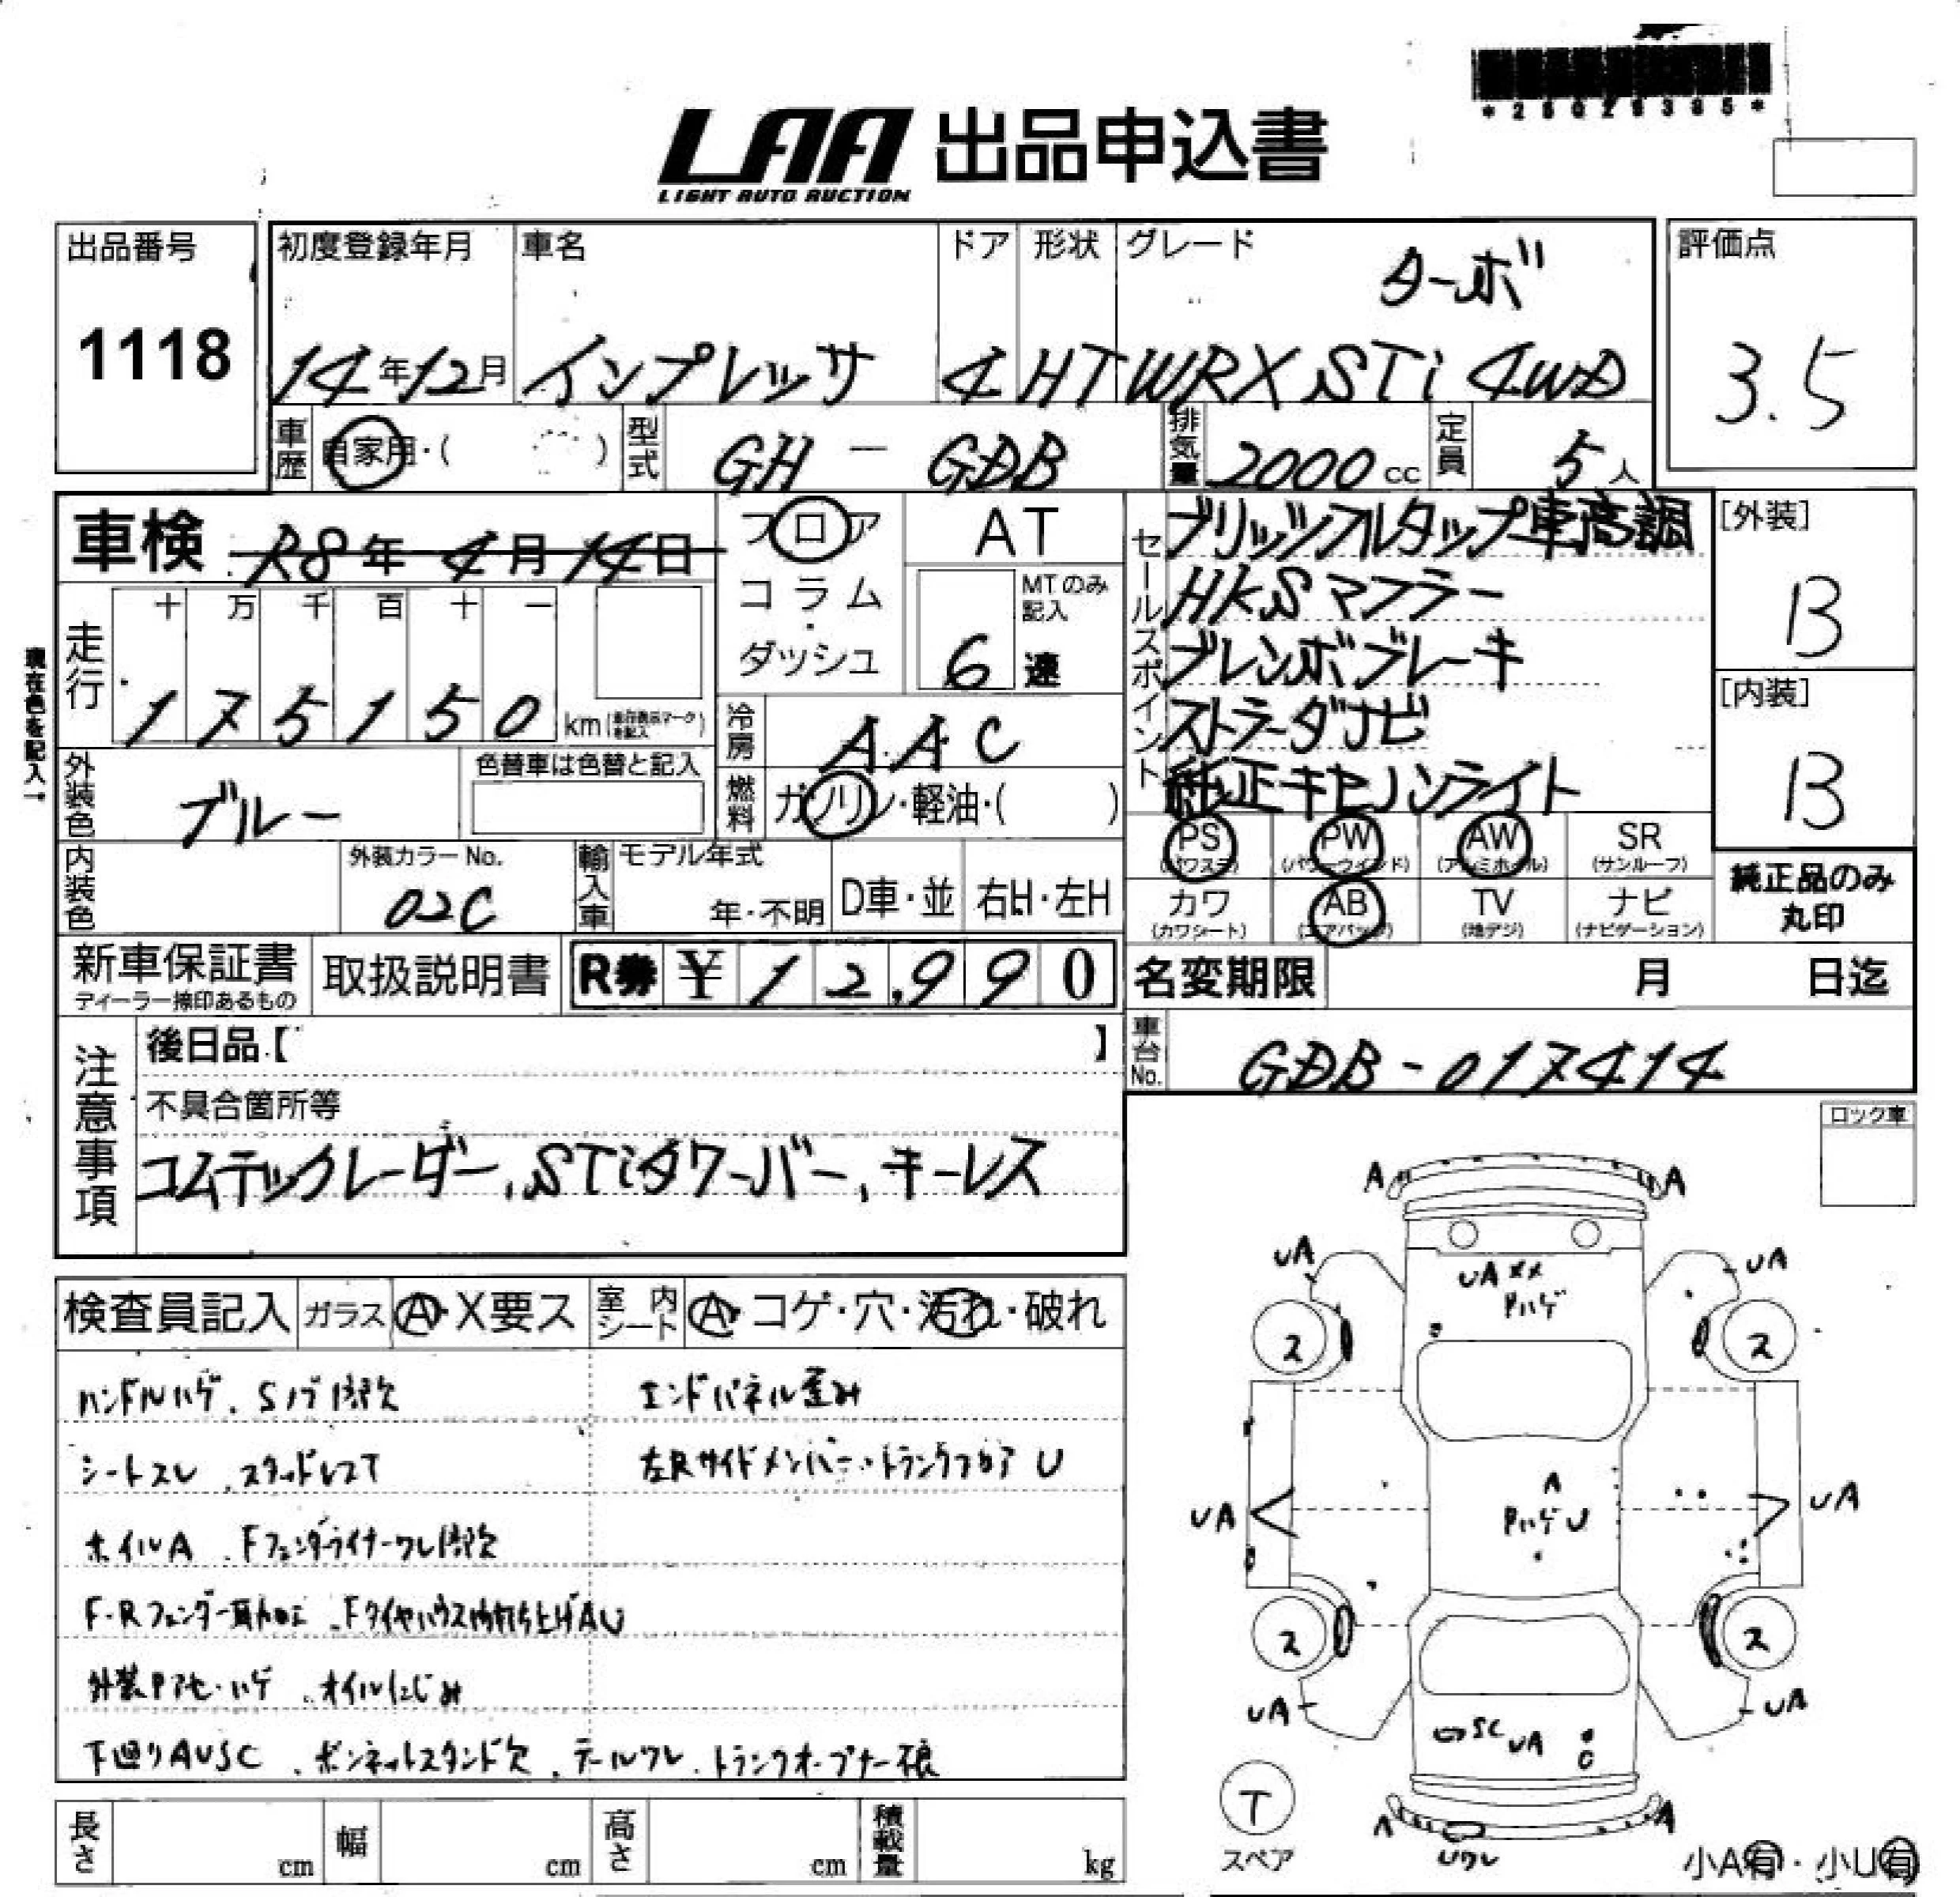 *25026385*
LAA 出品申込書
LIGHT AUTO AUCTION
出品番号
1118
初度登録年月 車名 ドア 形状 グレード
ターボ
14年12月 インプレッサ 4 HT WRX STi 4WD
評価点
3.5
車歴 自家用・( ) 型式 GH - GDB 排気量 2000cc 定員 5人
車検 R8年4月14日
フロア
コラム
・
ダッシュ
AT
MTのみ記入
6速
セールスポイント
ブリッツフルタップ車高調
HKSマフラー
ブレンボブレーキ
ストラーダナビ
純正キセノンライト
[外装]
B
[内装]
B
現在色を記入
走行
十 万 千 百 十 一
1 7 5 1 5 0 km
冷房 AAC
外装色 ブルー
色替車は色替と記入
燃料 ガソリン・軽油・( )
PS (パワステ) PW (パワーウィンド) AW (アルミホイル) SR (サンルーフ)
カワ (カワシート) AB (エアバッグ) TV (地デジ) ナビ (ナビゲーション)
純正品のみ
丸印
内装色
外装カラーNo.
02C
輸入車 モデル年式
年・不明 D車・並 右H・左H
新車保証書
ディーラー捺印あるもの
取扱説明書
R券 ¥ 12,990
名変期限 月 日迄
注意事項
後日品【 】
不具合箇所等
コムテックレーダー, STiタワーバー, キーレス
車台No. GDB-017414
ロック車
検査員記入 ガラス A・X要ス 室内シート A・コゲ・穴・汚れ・破れ
ハンドルハゲ、Sノブ1部欠
エンドパネル歪み
シートスレ、スタッドレスT
左Rサイドメンバー・トランクフロア U
ホイルA、Fフェンダーライナーワレ1部欠
F・Rフェンダー耳加工、Fタイヤハウス内打ち上げAU
外装Pアセ・ハゲ、オイルにじみ
下廻りAUSC、ボンネットスタンド欠、テールワレ、トランクオープナー不良
A A
UA UA
UA XX
Pハゲ
2 2
A
UA PハゲU UA
2 2
UA SC UA UA
T
スペア
A A
Uワレ
小A有・小U有
長さ cm 幅 cm 高さ cm 積載量 kg